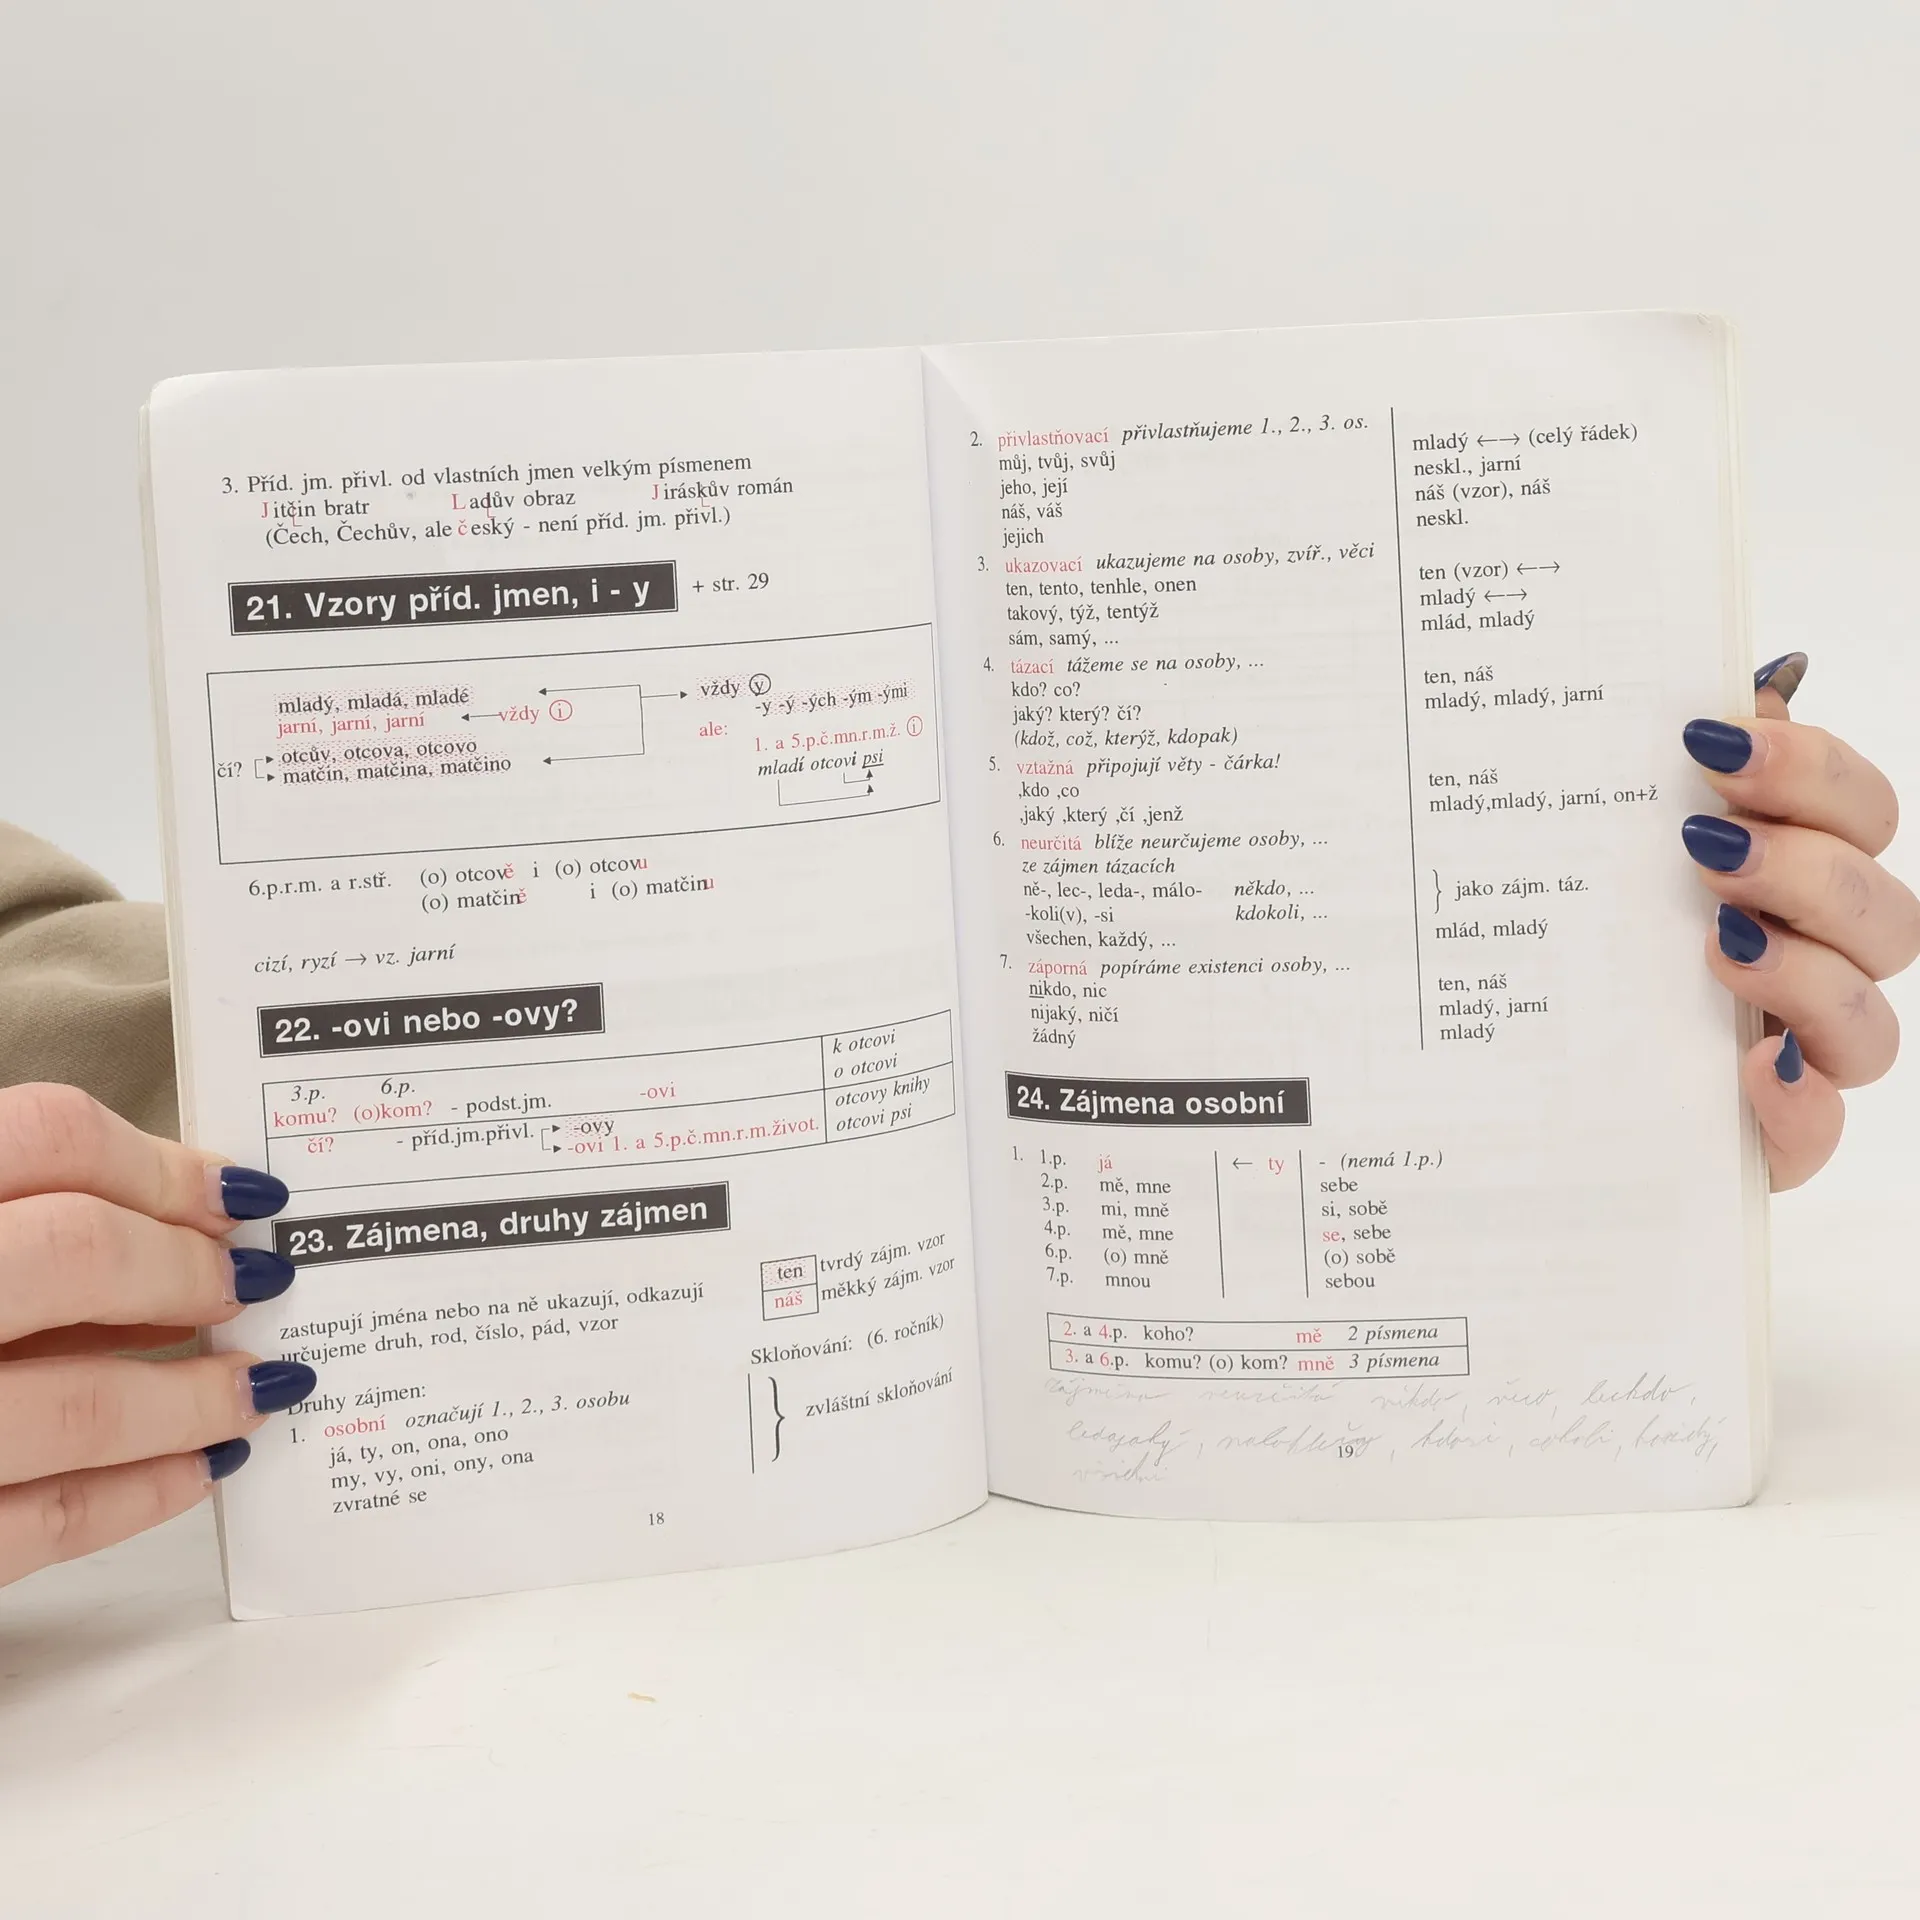 3. Příd. jm. přivl. od vlastních jmen velkým písmenem
Jitčin bratr Ladův obraz Jiráskův román
(Čech, Čechův, ale český - není příd. jm. přivl.)
21. Vzory příd. jmen, i - y + str. 29
mladý, mladá, mladé
jarní, jarní, jarní
vždy i
čí?
otcův, otcova, otcovo
matčin, matčina, matčino
vždy y
-y -ý -ých -ým -ými
ale:
1. a 5.p.č.mn.r.m.ž. i
mladí otcovi psi
6.p.r.m. a r.stř. (o) otcově i (o) otcovu
(o) matčině i (o) matčinu
cizí, ryzí → vz. jarní
22. -ovi nebo -ovy?
3.p. 6.p.
komu? (o)kom? - podst.jm. -ovi
k otcovi
o otcovi
čí? - příd.jm.přivl.
-ovy
-ovi 1. a 5.p.č.mn.r.m.život.
otcovy knihy
otcovi psi
23. Zájmena, druhy zájmen
zastupují jména nebo na ně ukazují, odkazují
určujeme druh, rod, číslo, pád, vzor
ten tvrdý zájm. vzor
náš měkký zájm. vzor
Skloňování: (6. ročník)
Druhy zájmen:
1. osobní označují 1., 2., 3. osobu
já, ty, on, ona, ono
my, vy, oni, ony, ona
zvratné se
} zvláštní skloňování
18
2. přivlastňovací přivlastňujeme 1., 2., 3. os.
můj, tvůj, svůj mladý ←→ (celý řádek)
jeho, její neskl., jarní
náš, váš náš (vzor), náš
jejich neskl.
3. ukazovací ukazujeme na osoby, zvíř., věci
ten, tento, tenhle, onen ten (vzor) ←→
takový, týž, tentýž mladý ←→
sám, samý, ... mlád, mladý
4. tázací tážeme se na osoby, ...
kdo? co? ten, náš
jaký? který? čí? mladý, mladý, jarní
(kdož, což, kterýž, kdopak)
5. vztažná připojují věty - čárka!
,kdo ,co ten, náš
,jaký ,který ,čí ,jenž mladý,mladý, jarní, on+ž
6. neurčitá blíže neurčujeme osoby, ...
ze zájmen tázacích
ně-, lec-, leda-, málo- někdo, ...
-koli(v), -si kdokoli, ...
} jako zájm. táz.
všechen, každý, ... mlád, mladý
7. záporná popíráme existenci osoby, ...
nikdo, nic ten, náš
nijaký, ničí mladý, jarní
žádný mladý
24. Zájmena osobní
1. 1.p. já ← ty - (nemá 1.p.)
2.p. mě, mne sebe
3.p. mi, mně si, sobě
4.p. mě, mne se, sebe
6.p. (o) mně (o) sobě
7.p. mnou sebou
2. a 4.p. koho? mě 2 písmena
3. a 6.p. komu? (o) kom? mně 3 písmena
19